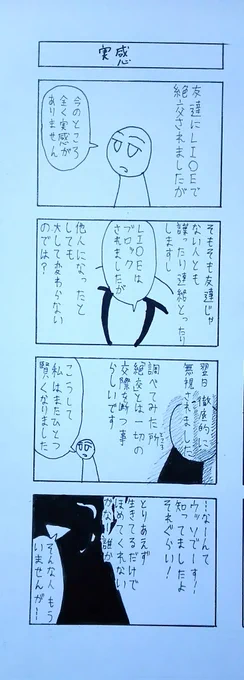 実感
友達にLIOEで
絶交されましたが
今のところ
全く実感が
ありません
そもそも友達じゃ
ない人とも
喋ったり連絡とったり
しますし
LIOEは
ブロック
されましたが
他人になったと
しても
大して変わらない
のでは?
翌日徹底的に
無視されました
調べてみた所
絶交とは一切の
交際を断つ事
らしいです
こうして
私はまたひとつ
賢くなりました
…なーんて
ウッソでーす!
知ってましたよ
それぐらい!
とりあえず
生きてるだけで
ほめてくれない
かなー誰か
そんな人もう
いませんが…